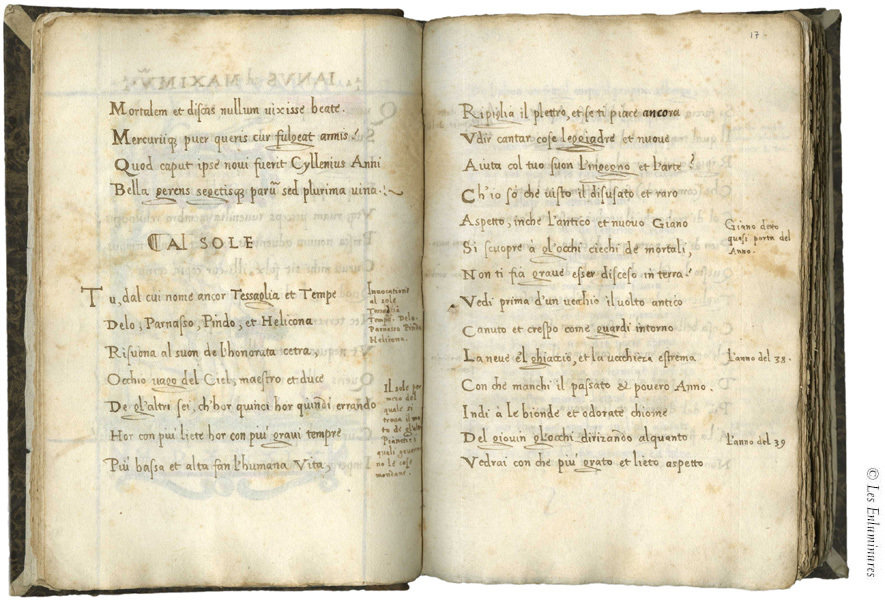 Mortalem et discas nullum uixisse beate.
Mercuriiq; puer queris cur fulgeat armis?
Quod caput ipse noui fuerit Cyllenius Anni
Bella gerens segetisq; parū sed plurima uina.
AL SOLE
Tu, dal cui nome ancor Tessaglia et Tempe
Delo, Parnasso, Pindo, et Helicona
Risuona al suon de l'honorata cetra,
Occhio uago del Ciel, maestro et duce
De gl'altri sei, ch'hor quinci hor quindi errando
Hor con piu' liete hor con piu' graui tempre
Piu' bassa et alta fan l'humana Vita,
Inuocatione
al sole
Tessaglia
Tempe. Delo.
Parnasso Pindo
Helicona.
Il sole per
mezo del
quale si
troua il mo
to de gl'altri
Pianeti, i
quali gouerna
no le cose
mondane.
17
Ripiglia il plettro, et se ti piace ancora
Vdir cantar cose leggiadre et nuoue
Aiuta col tuo suon l'ingegno et l'arte?
Ch'io so che uisto il disusato et raro
Aspetto, in che l'antico et nuouo Giano
Si scuopre à gl'occhi ciechi de mortali,
Non ti fia graue esser disceso in terra?
Vedi prima d'un uecchio il uolto antico
Canuto et crespo come guardi intorno
La neue e'l ghiaccio, et la uecchiezza estrema
Con che manchi il passato & pouero Anno.
Indi à le bionde et odorate chiome
Del giouin gl'occhi dirizando alquanto
Vedrai con che piu' grato et lieto aspetto
Giano detto
quasi porta del
Anno.
L'anno del 38.
L'anno del 39
© Les Enluminures